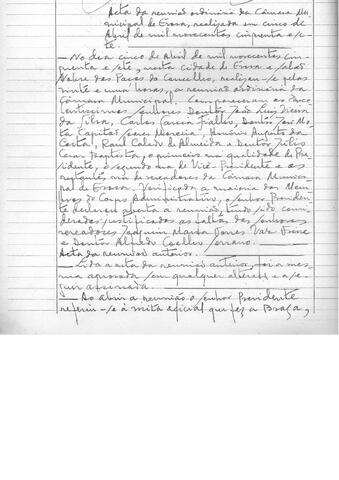 Acta da reunião ordinária da Câmara Mu-
nicipal de Évora, realizada em cinco de
Abril de mil novecentos cinquenta e se-
te.
— Aos cinco de Abril de mil novecentos cin-
quenta e sete, nesta cidade de Évora e salas
Nobre dos Paços do Concelho, realizou-se pelas
vinte e uma horas, a reunião ordinária da
Câmara Municipal. Compareceram os Exce-
lentíssimos Senhores Doutor João Luiz Vieira
da Silva, Carlos Garcia Fialho, Doutor José Mo-
ta Capitão Soares Moreira, Augusto da
Costa, Raul Calado de Almeida e Doutor Júlio
Cesar Baptista, o primeiro na qualidade de Pre-
sidente, o segundo na de Vice-Presidente e os
restantes, na de vereadores da Câmara Munici-
pal de Évora. Verificada a maioria dos Mem-
bros do Corpo Administrativo, o senhor Presiden-
te declarou aberta a reunião, tendo sido consi-
deradas justificadas as faltas dos senhores
vereadores Joaquim Maria Gomes Vaz Freire
e Doutor Alfredo Coelho Serrano.
Acta da reunião anterior.
— Lida a acta da reunião anterior, foi a mes-
ma aprovada sem qualquer alteração e a se-
guir assinada.
— Ao abrir a reunião o senhor Presidente
referiu-se à visita oficial que fez a Braga,